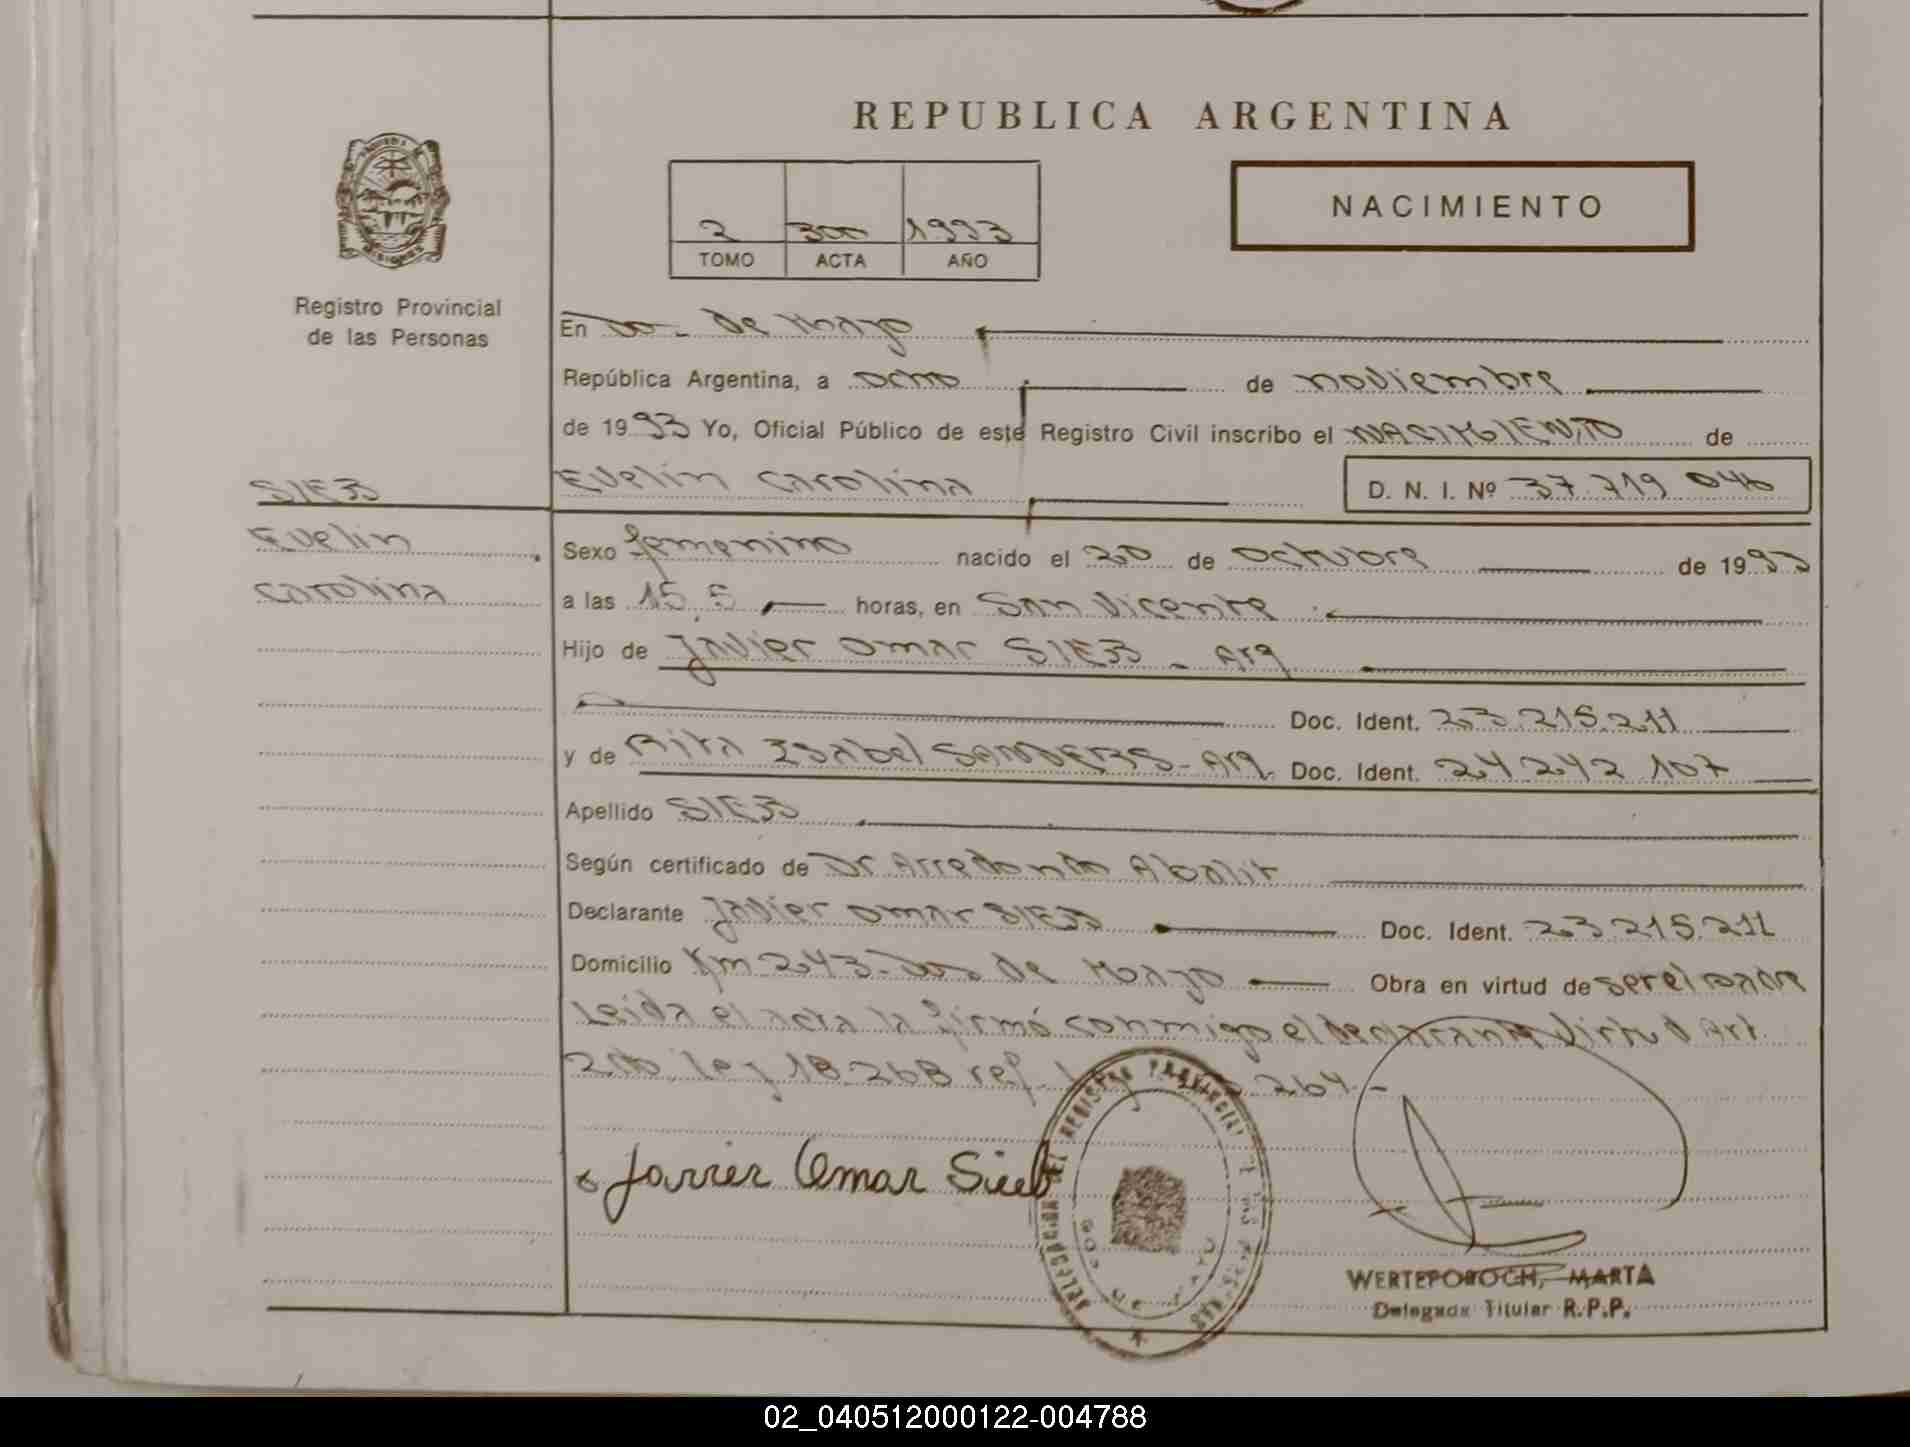 REPUBLICA ARGENTINA
NACIMIENTO
2 300 1993
TOMO ACTA AÑO
Registro Provincial
de las Personas
En Dos de Mayo
República Argentina, a ocho de noviembre
de 1993 Yo, Oficial Público de este Registro Civil inscribo el NACIMIENTO de
Evelin Carolina
D. N. I. Nº 37.719.046
SIEB
Evelin
Carolina
Sexo femenino nacido el 20 de octubre de 1993
a las 15,5 horas, en San Vicente
Hijo de Javier Omar SIEB - Arg
Doc. Ident. 23.215.211
y de Rita Isabel SANDERS - Arg. Doc. Ident. 24.242.107
Apellido SIEB
Según certificado de Dr Arredondo Abalit
Declarante Javier Omar SIEB Doc. Ident. 23.215.211
Domicilio Km 243 - Dos de Mayo Obra en virtud de ser el padre
Leida el acta la firmó conmigo el declarante Virtud Art.
2do. ley 18.268 ref. 264.-
Javier Omar Sieb
DELEGACION DEL REGISTRO PROVINCIAL DE LAS PERSONAS
DOS DE MAYO
WERTEPOROCH, MARTA
Delegada Titular R.P.P.
02_040512000122-004788